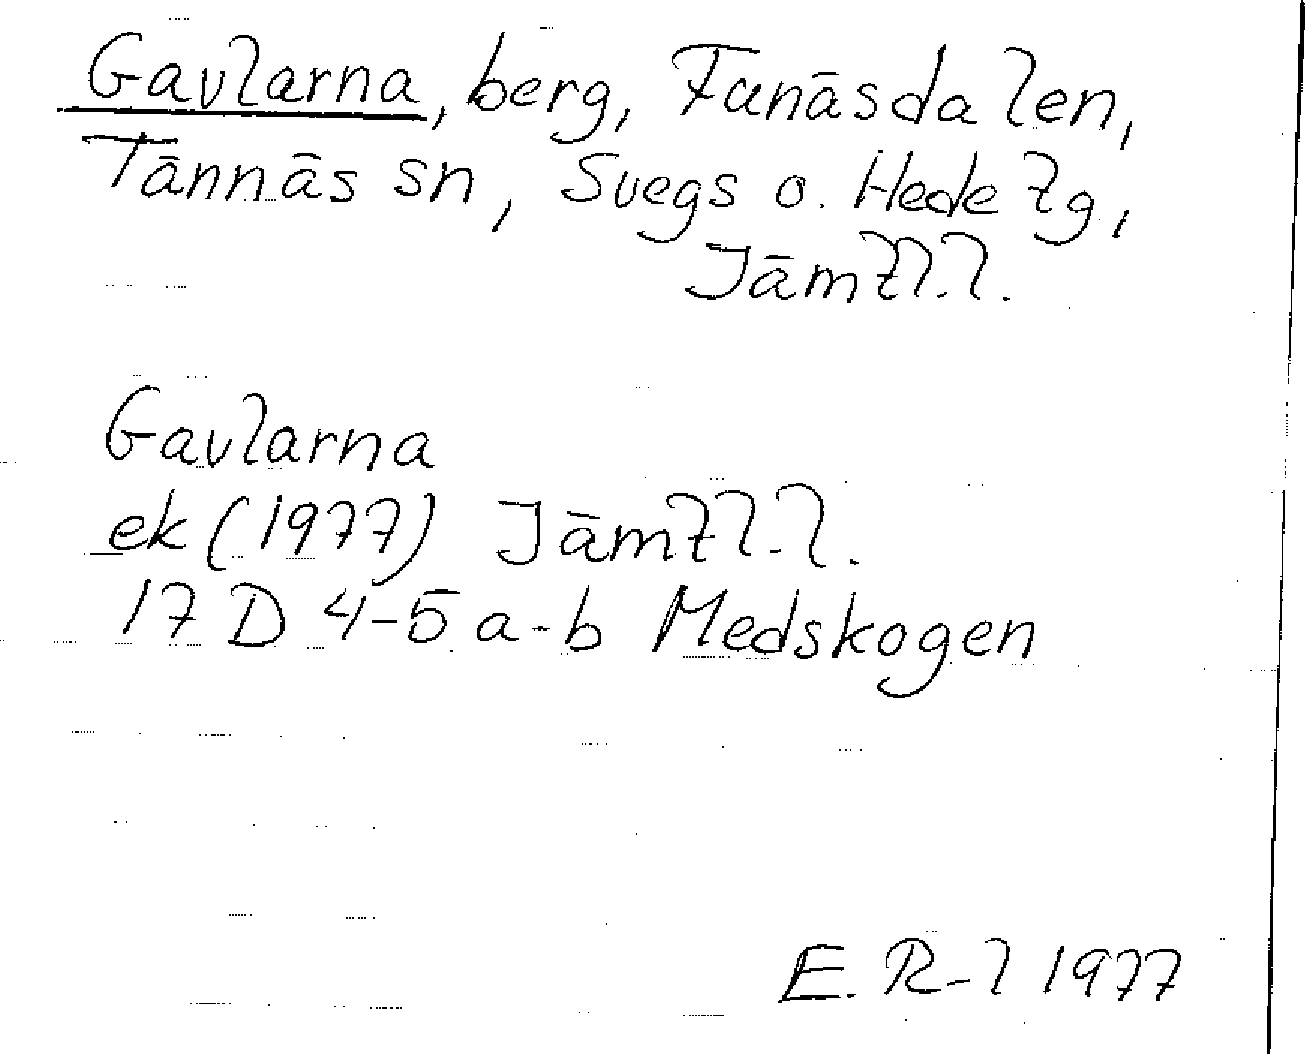 Gavlarna, berg, Funäsdalen,
Tännäs sn, Svegs o. Hede tg,
Jämtl.l.
Gavlarna
ek (1977) Jämtl.l.
17 D 4-5 a-b Medskogen
E. R-l 1977